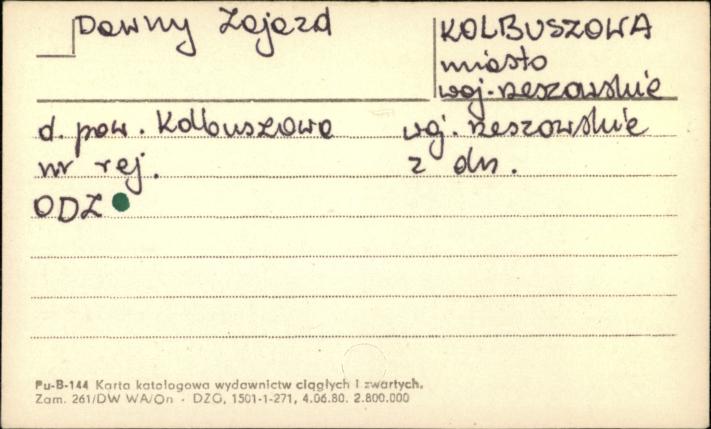 Dawny Zajazd
KOLBUSZOWA
miasto
woj. rzeszowskie
d. pow. Kolbuszowa woj. rzeszowskie
nr rej. z dn.
ODZ
Pu-B-144 Karta katalogowa wydawnictw ciągłych i zwartych.
Zam. 261/DW WA/On - DZG, 1501-1-271, 4.06.80. 2.800.000